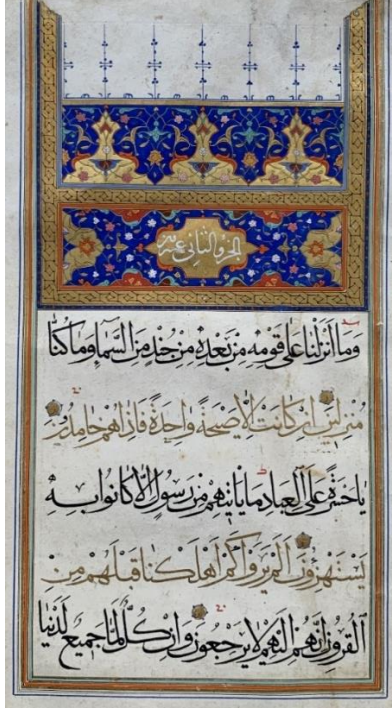 الجزو الثانى عشر
وَمَا أَنْزَلْنَا عَلَى قَوْمِهِ مِنْ بَعْدِهِ مِنْ جُنْدٍ مِنَ السَّمَاءِ وَمَا كُنَّا
مُنْزِلِينَ إِنْ كَانَتْ إِلَّا صَيْحَةً وَاحِدَةً فَإِذَا هُمْ خَامِدُونَ
يَا حَسْرَةً عَلَى الْعِبَادِ مَا يَأْتِيهِمْ مِنْ رَسُولٍ إِلَّا كَانُوا بِهِ
يَسْتَهْزِؤُنَ أَلَمْ يَرَوْا كَمْ أَهْلَكْنَا قَبْلَهُمْ مِنَ
الْقُرُونِ أَنَّهُمْ إِلَيْهِمْ لَا يَرْجِعُونَ وَإِنْ كُلٌّ لَمَّا جَمِيعٌ لَدَيْنَا